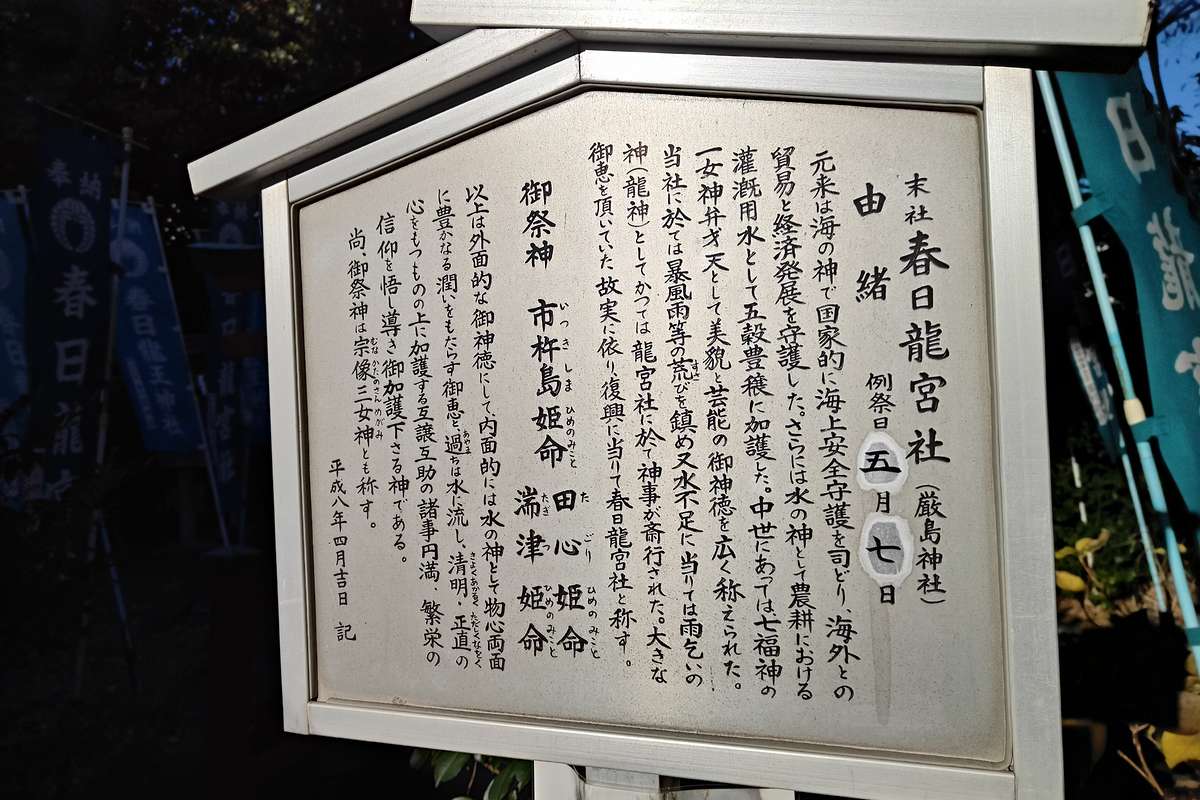 末社 春日龍宮社(厳島神社)
由緒 例祭日 五月七日
元来は海の神で国家的に海上安全守護を司どり、海外との
貿易と経済発展を守護した。さらには水の神として農耕における
灌漑用水として五穀豊穣に加護した。中世にあっては七福神の
一女神弁才天として美貌と芸能の御神徳を広く称えられた。
当社に於ては暴風雨等の荒びを鎮め又水不足に当りては雨乞いの
神(龍神)としてかつては龍宮社に於て神事が斎行された。大きな
御恵を頂いていた故実に依り、復興に当りて春日龍宮社と称す。
御祭神 市杵島姫命 田心姫命
湍津姫命
以上は外面的な御神徳にして、内面的には水の神として物心両面
に豊かなる潤いをもたらす御恵と、過ちは水に流し、清明・正直の
心をもつものの上に加護する互譲互助の諸事円満、繁栄の
信仰を悟し導き御加護下さる神である。
尚、御祭神は宗像三女神とも称す。
平成八年四月吉日 記
日龍
奉納
春日龍